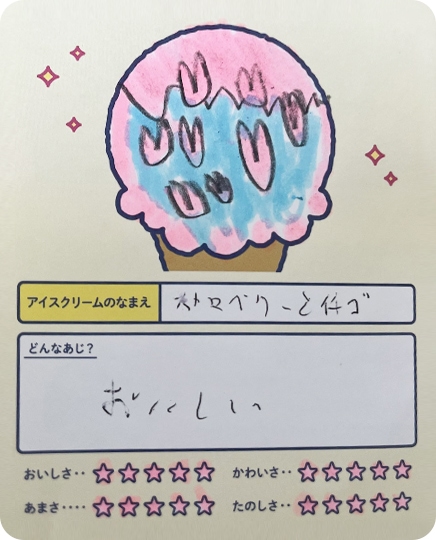 アイスクリームのなまえ ストロベリーと
どんなあじ?
おいしい
おいしさ‥ ☆☆☆☆☆ かわいさ‥ ☆☆☆☆☆
あまさ‥‥ ☆☆☆☆☆ たのしさ‥ ☆☆☆☆☆